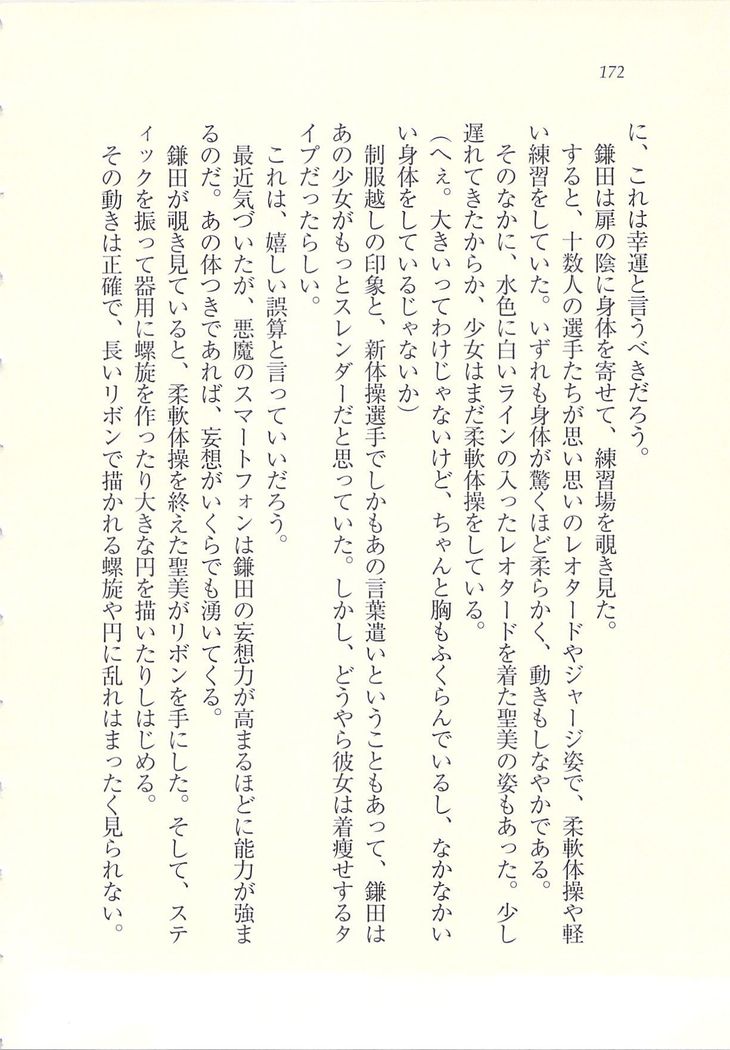 172
に、これは幸運と言うべきだろう。
鎌田は扉の陰に身体を寄せて、練習場を覗き見た。
すると、十数人の選手たちが思い思いのレオタードやジャージ姿で、柔軟体操や軽
い練習をしていた。いずれも身体が驚くほど柔らかく、動きもしなやかである。
そのなかに、水色に白いラインの入ったレオタードを着た聖美の姿もあった。少し
遅れてきたからか、少女はまだ柔軟体操をしている。
（へぇ。大きいってわけじゃないけど、ちゃんと胸もふくらんでいるし、なかなかい
い身体をしているじゃないか）
制服越しの印象と、新体操選手でしかもあの言葉遣いということもあって、鎌田は
あの少女がもっとスレンダーだと思っていた。しかし、どうやら彼女は着痩せするタ
イプだったらしい。
これは、嬉しい誤算と言っていいだろう。
最近気づいたが、悪魔のスマートフォンは鎌田の妄想力が高まるほどに能力が強ま
るのだ。あの体つきであれば、妄想がいくらでも湧いてくる。
鎌田が覗き見ていると、柔軟体操を終えた聖美がリボンを手にした。そして、ステ
ィックを振って器用に螺旋を作ったり大きな円を描いたりしはじめる。
その動きは正確で、長いリボンで描かれる螺旋や円に乱れはまったく見られない。